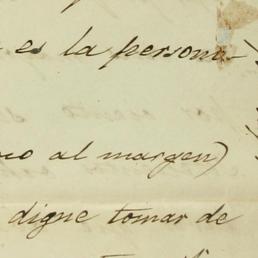 es la persona
al margen)
digne tomar de